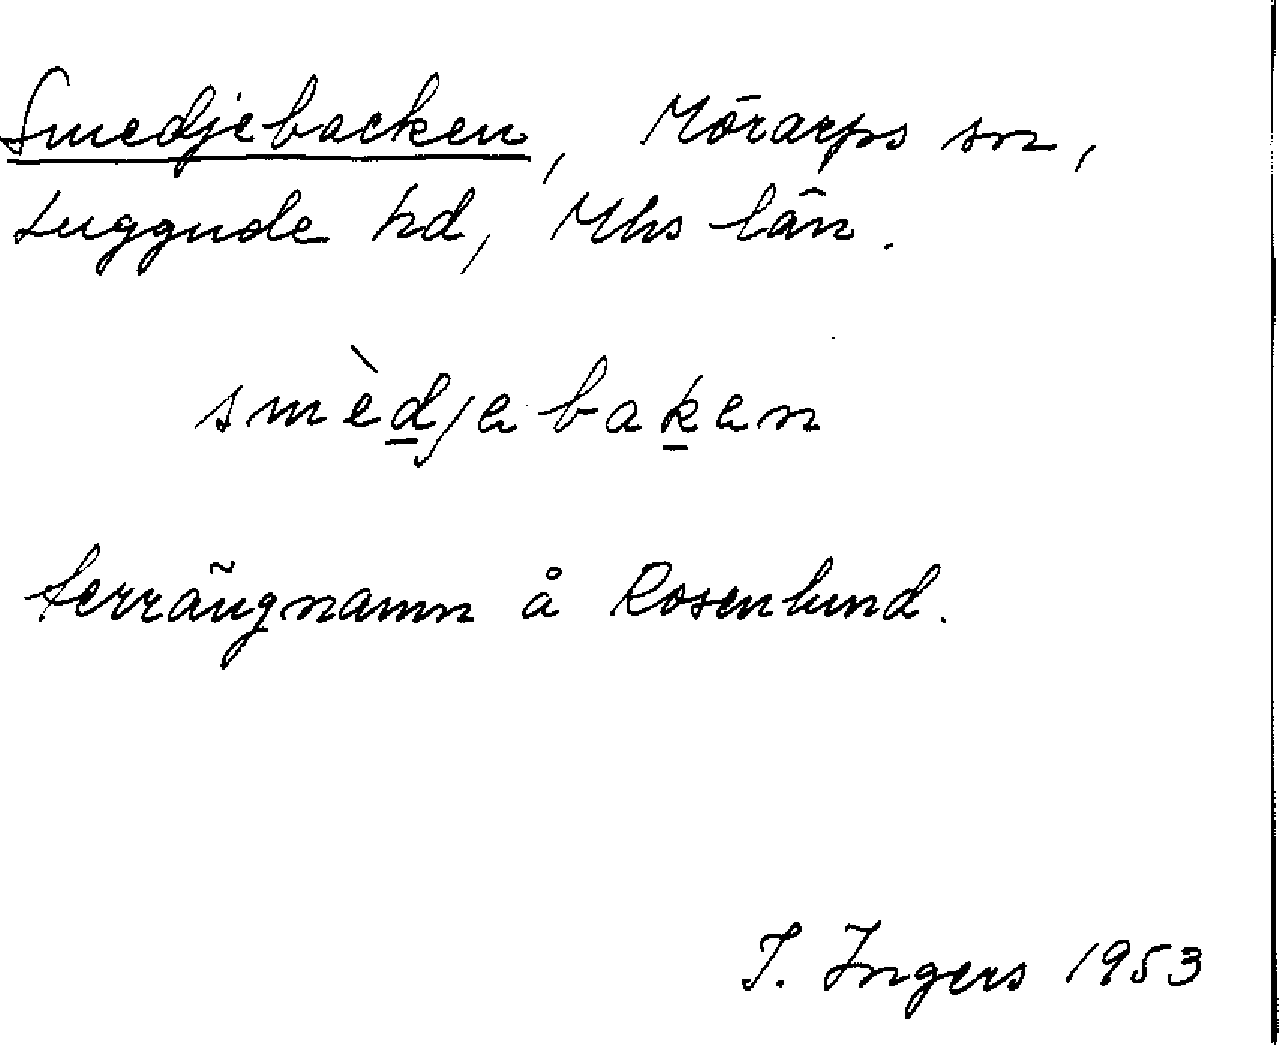 Smedjebacken, Mörarps sn,
Luggude hd, Mhs län.
smèd̲jebak̲en
terrängnamn å Rosenlund.
I. Ingers 1953